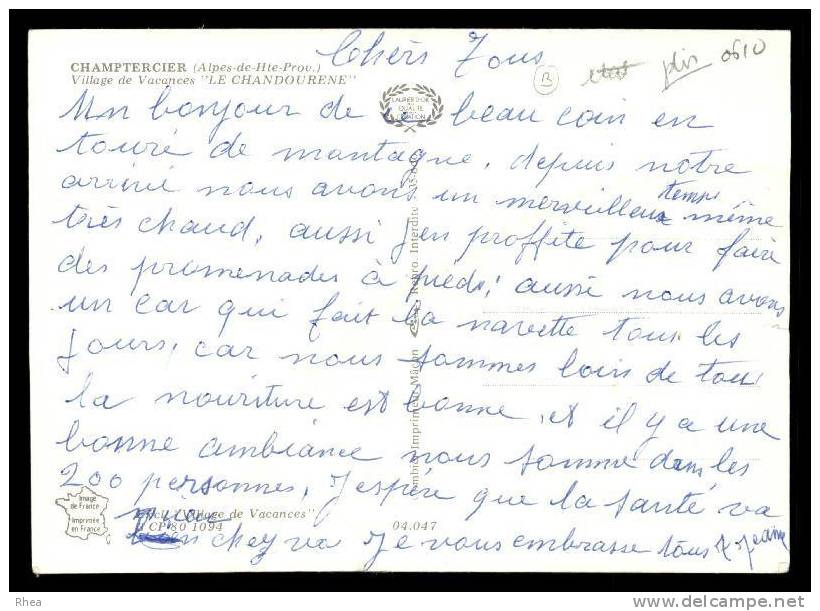 Chers Tous
CHAMPTERCIER (Alpes-de-Hte-Prov.)
Village de Vacances "LE CHANDOURENE"
B plis 0610
LAURIER D'OR
QUALITE
Un bonjour de ce beau coin en
touré de montagne, depuis notre
arrivé nous avons un merveilleux temps même
très chaud, aussi j'en proffite pour faire
des promenades à pieds, aussi nous avons
un car qui fait la navette tous les
jours, car nous sommes loin de tout
la nouriture est bonne, et il y a une
bonne ambiance nous somme dans les
200 personnes, j'espère que la santé va
chez vous Je vous embrasse tous Jeanne
Image
de France
Imprimée
en France
"Village de Vacances"
CP 80 1094
04.047
Combier Imprimeur Mâcon
Repro. Interdite
Rhea
www.delcampe.net